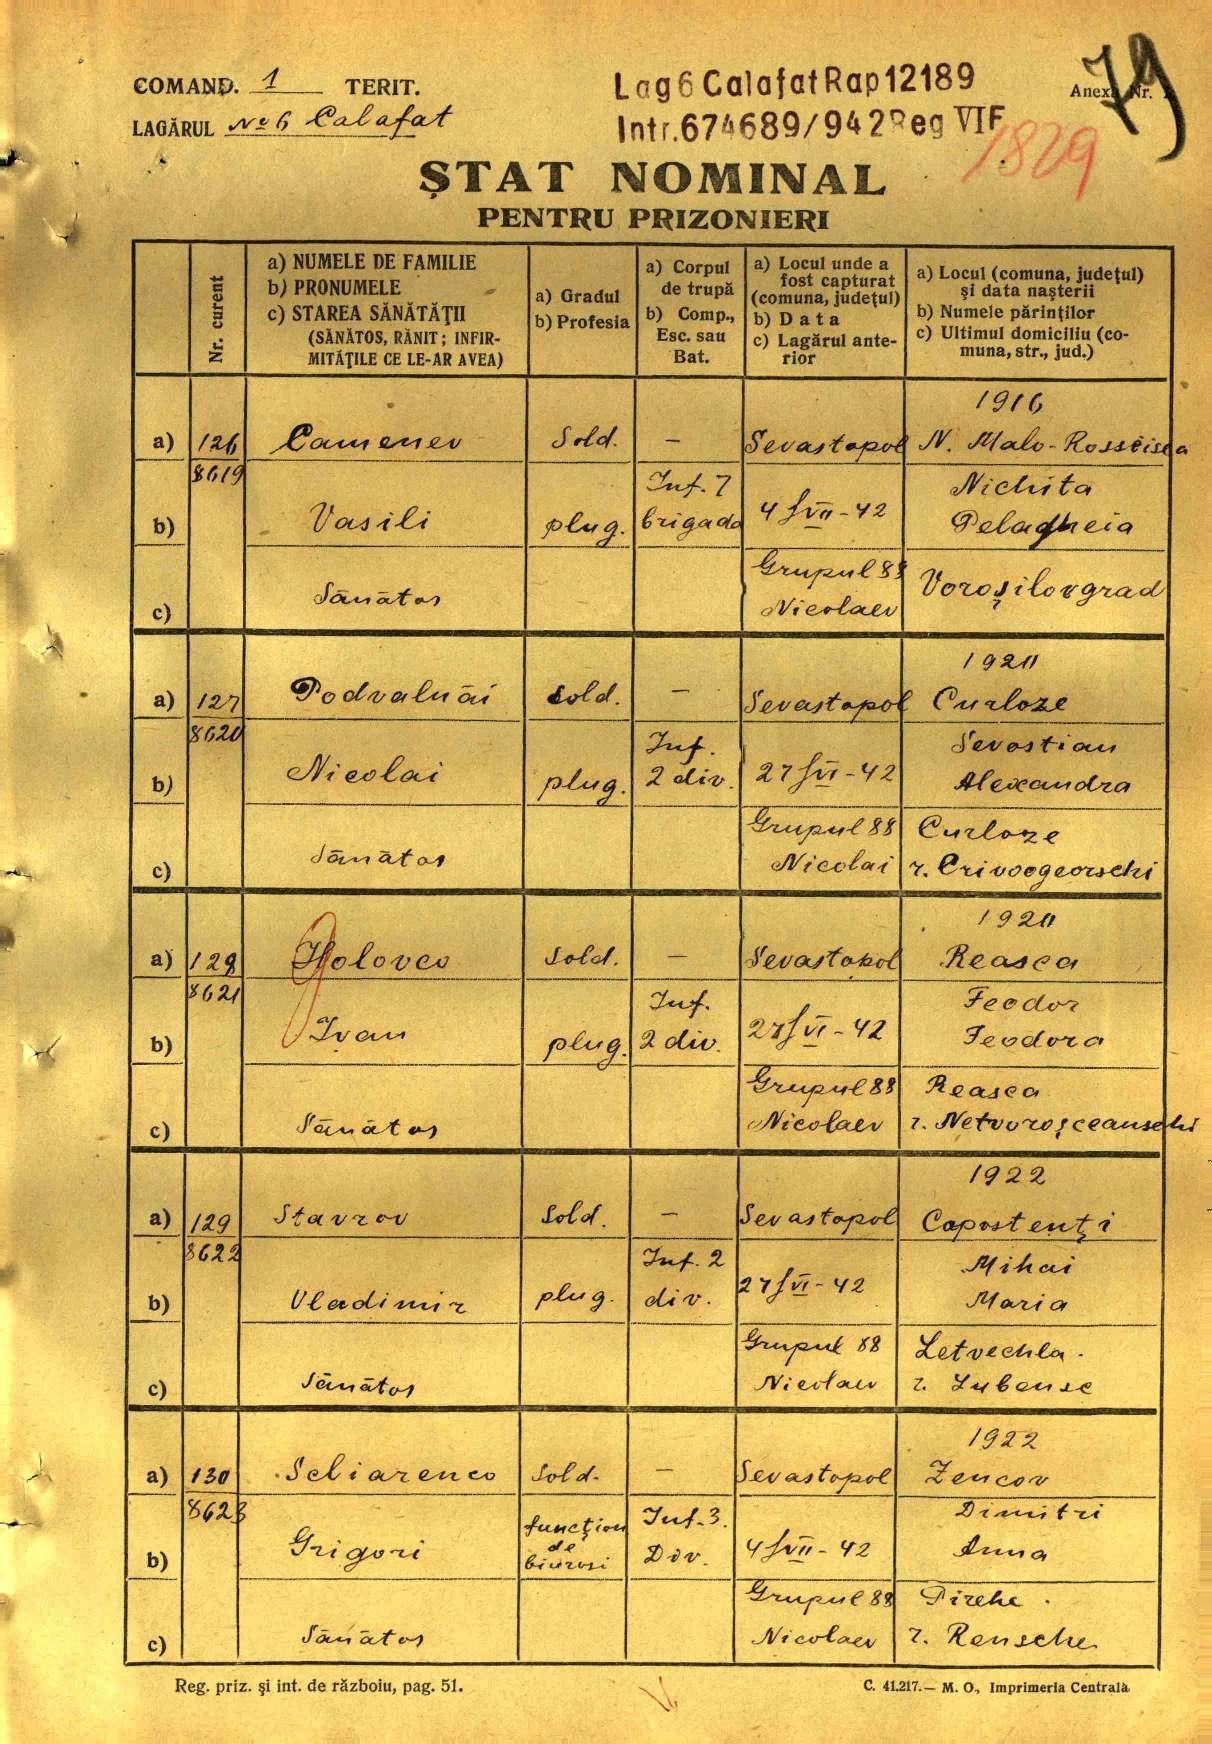 COMAND. 1 TERIT.
LAGĂRUL No 6 Calafat
Lag 6 Calafat Rap 12189
Intr. 674689/942 Reg VIF
Anexa Nr.
79
1829
ŞTAT NOMINAL
PENTRU PRIZONIERI
Nr. curent
a) NUMELE DE FAMILIE
b) PRONUMELE
c) STAREA SĂNĂTĂŢII
(SĂNĂTOS, RĂNIT; INFIR-
MITĂŢILE CE LE-AR AVEA)
a) Gradul
b) Profesia
a) Corpul
de trupă
b) Comp.,
Esc. sau
Bat.
a) Locul unde a
fost capturat
(comuna, judeţul)
b) Data
c) Lagărul ante-
rior
a) Locul (comuna, judeţul)
şi data naşterii
b) Numele părinţilor
c) Ultimul domiciliu (co-
muna, str., jud.)
1916
a) 126 Camenev Sold. – Sevastopol N. Malo-Rosseisca
8619
b) Vasili plug. Inf. 7 brigada 4/VII-42 Nichita
Pelagheia
c) Sănătos Grupul 88 Nicolaev Voroşilovgrad
1920
a) 127 Podvalnăi Sold. – Sevastopol Curloze
8620
b) Nicolai plug. Inf. 2 div. 27/VI-42 Sevostian
Alexandra
c) Sănătos Grupul 88 Nicolai Curloze
r. Crivoogeorschi
1920
a) 128 Holovco Sold. – Sevastopol Reasca
8621
b) Ivan plug. Inf. 2 div. 27/VI-42 Feodor
Feodora
c) Sănătos Grupul 88 Nicolaev Reasca
r. Netvoroşceanschi
1922
a) 129 Stavrov Sold. – Sevastopol Capostenţi
8622
b) Vladimir plug. Inf. 2 div. 27/VI-42 Mihai
Maria
c) Sănătos Grupul 88 Nicolaev Letvechla.
r. Lubensc
1922
a) 130 Scliarenco Sold. – Sevastopol Zencov
8623
b) Grigori funcţion de biurosi Inf. 3. Div. 4/VII-42 Dimitri
Anna
c) Sănătos Grupul 88 Nicolaev Pirehe.
r. Rensche
Reg. priz. şi int. de războiu, pag. 51.
C. 41.217.— M. O., Imprimeria Centrală